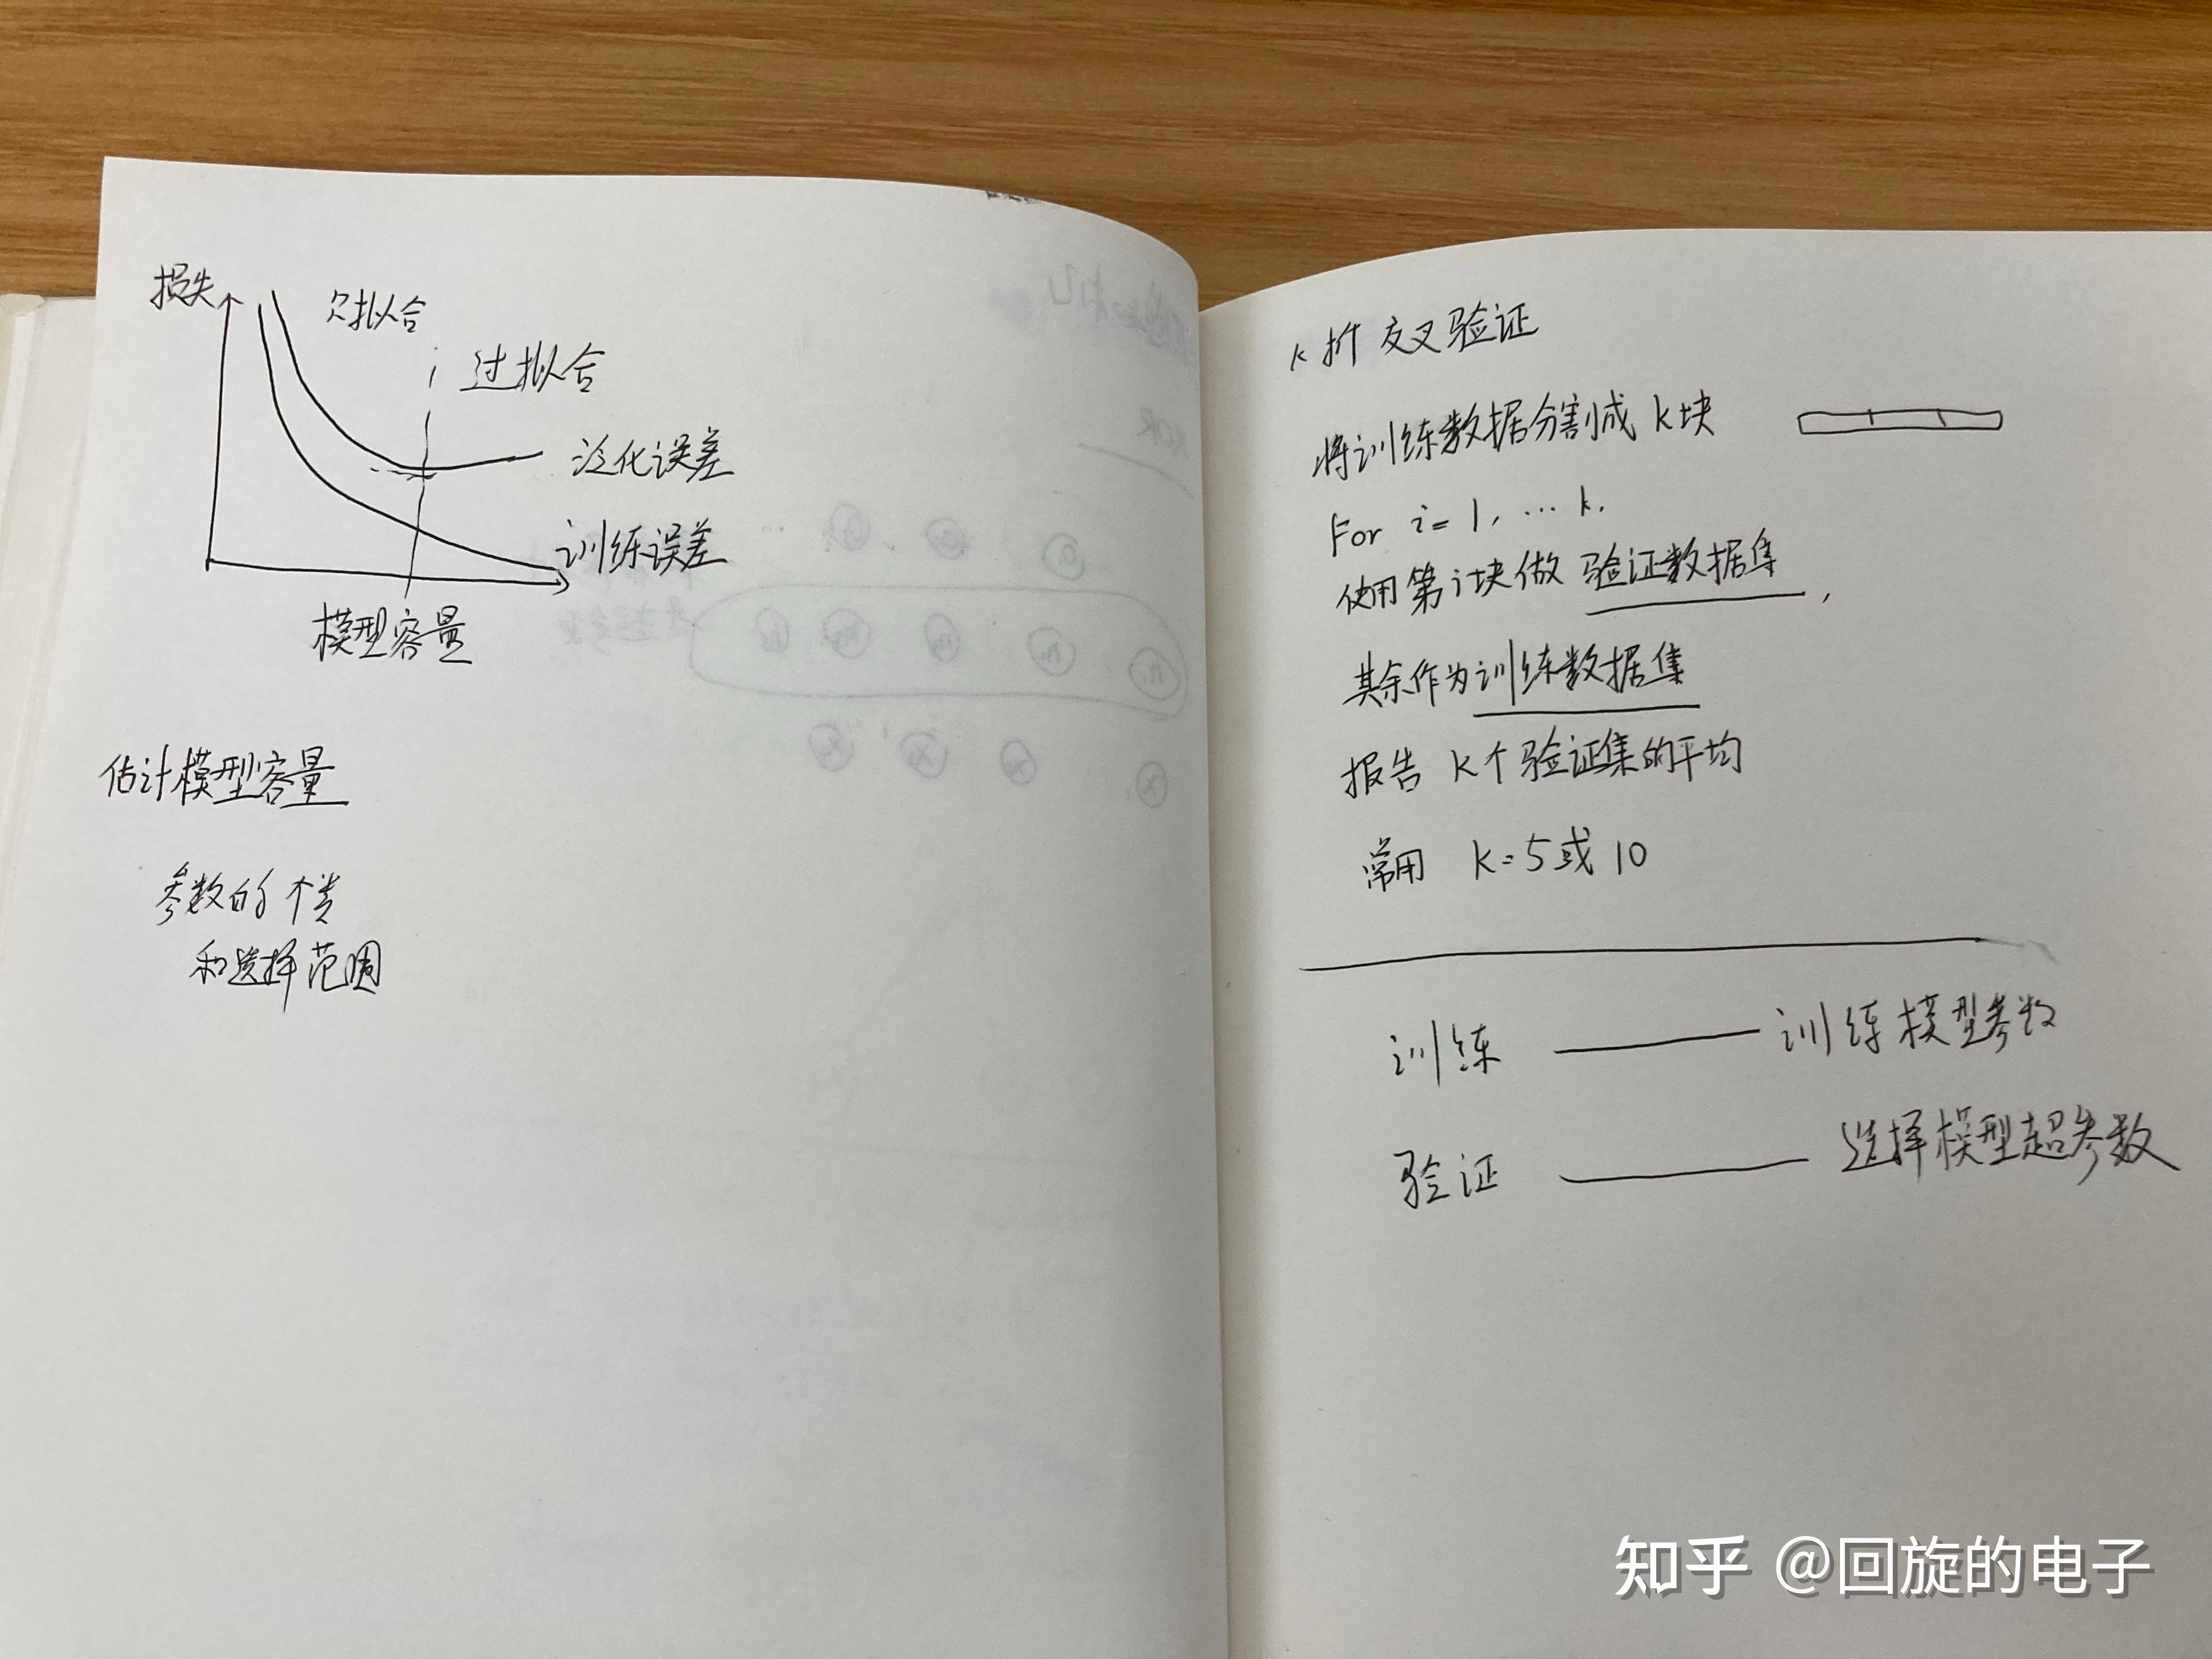 损失
欠拟合
过拟合
泛化误差
训练误差
模型容量
估计模型容量
参数的个数
和选择范围
k折 交叉验证
将训练数据分割成 k块
For i=1, … k.
使用第i块做 验证数据集,
其余作为训练数据集
报告 k个验证集的平均
常用 k=5或10
训练 —— 训练模型参数
验证 —— 选择模型超参数
知乎 @回旋的电子